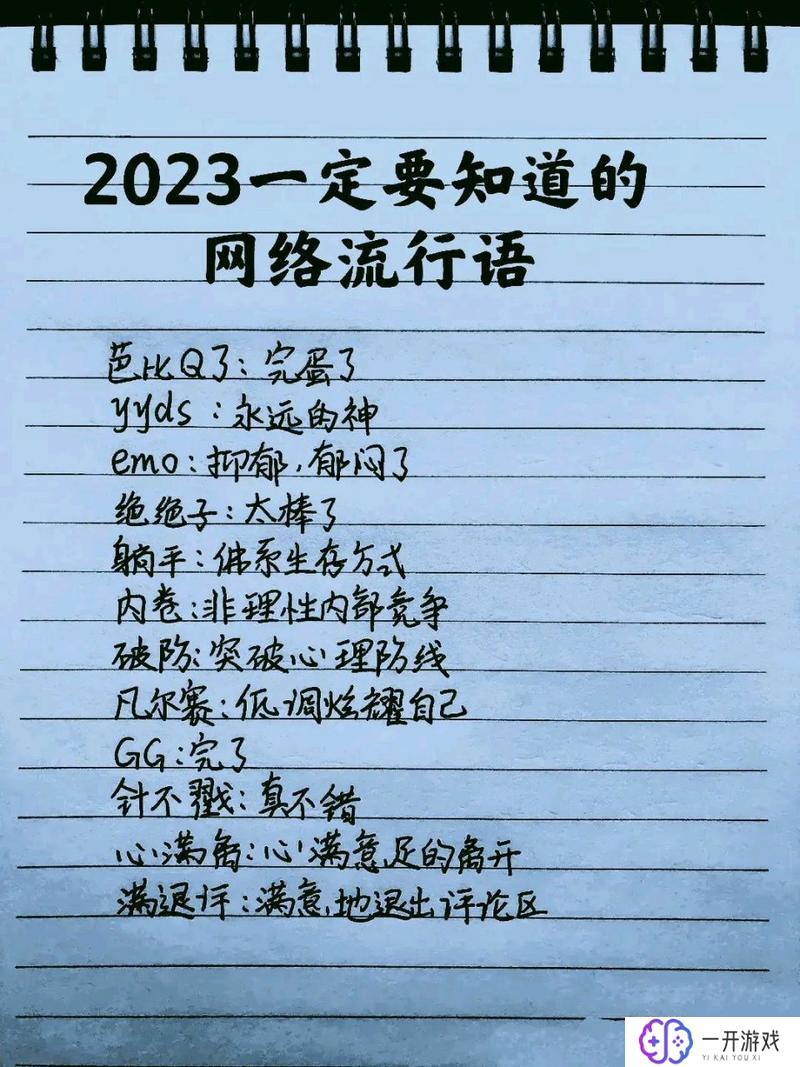 2023一定要知道的
网络流行语
芭比Q了：完蛋了
yyds：永远的神
emo：抑郁，郁闷了
绝绝子：太棒了
躺平：佛系生存方式
内卷：非理性内部竞争
破防：突破心理防线
凡尔赛：低调炫耀自己
GG：完了
针不戳：真不错
心满离：心满意足的离开
满退坪：满意地退出评论区
一开游戏
YI KAI YOU XI